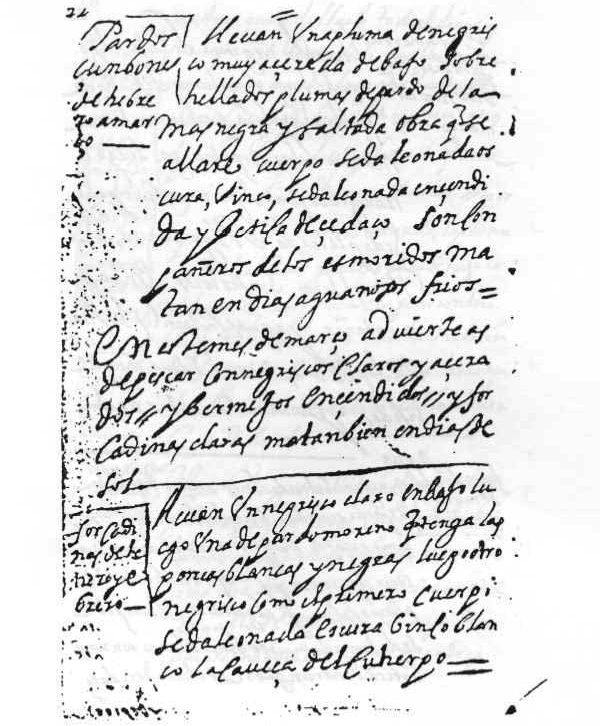 Pardos
cunbones
de hebre
ro amar
ço
lleuan Una pluma de negris
co muy açerada debajo sobre
hella dos plumas de pardo de la
mas negra y saltada obra q se
allare cuerpo seda leonada os
cura, Vinco, seda leonada ençendi
da y de çedaço Son con
pañeros de los esmoridos ma
tan en dias aguanosos frios
En es te mes de março advierte as
de pescar con negriscos claros y açera
dos y bermejos ençendidos y sor
cadinas claras matan bien en dias de
sol
Sorcadi
nas de he
nero y e
brero
lleuan Un negrisco claro en bajo lu
ego Una de pardo moreno q tenga las
porcas blancas y negras luego otro
negrisco como el primero Cuerpo
seda leonada escura binco blan
co la caueça del Cuherpo